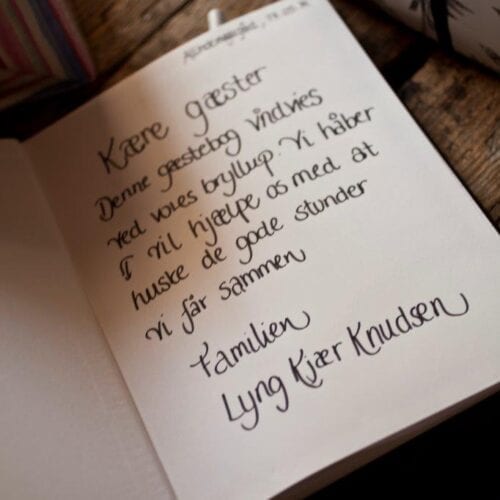 Kære gæster
Denne gæstebog indvies
ved vores bryllup. Vi håber
I vil hjælpe os med at
huske de gode stunder
vi får sammen
Familien
Lyng Kjær Knudsen